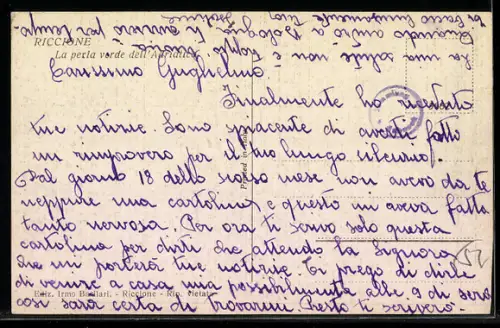 RICCIONE
La perla verde dell'Adriatico
Carissimo Guglielmo
Finalmente ho ricevuto
tue notizie. Sono spiacente di averti fatto
un rimprovero per il tuo lungo silenzio.
Dal giorno 18 dello scorso mese non avevo da te
neppure una cartolina e questo mi aveva fatta
tanto nervosa. Per ora ti scrivo solo questa
cartolina per dirti che attendo la Signora
che mi porterà tue notizie. Ti prego di dirle
di venire a casa mia possibilmente alle 9 di sera
così sarà certa di trovarmi. Presto ti scriverò
La mia salute non è troppo
Quando a Bologna ti scriverò
più lungamente. tua
Ediz. Irma Baglìari. - Riccione - Rip. vietata
Printed in Italy
152